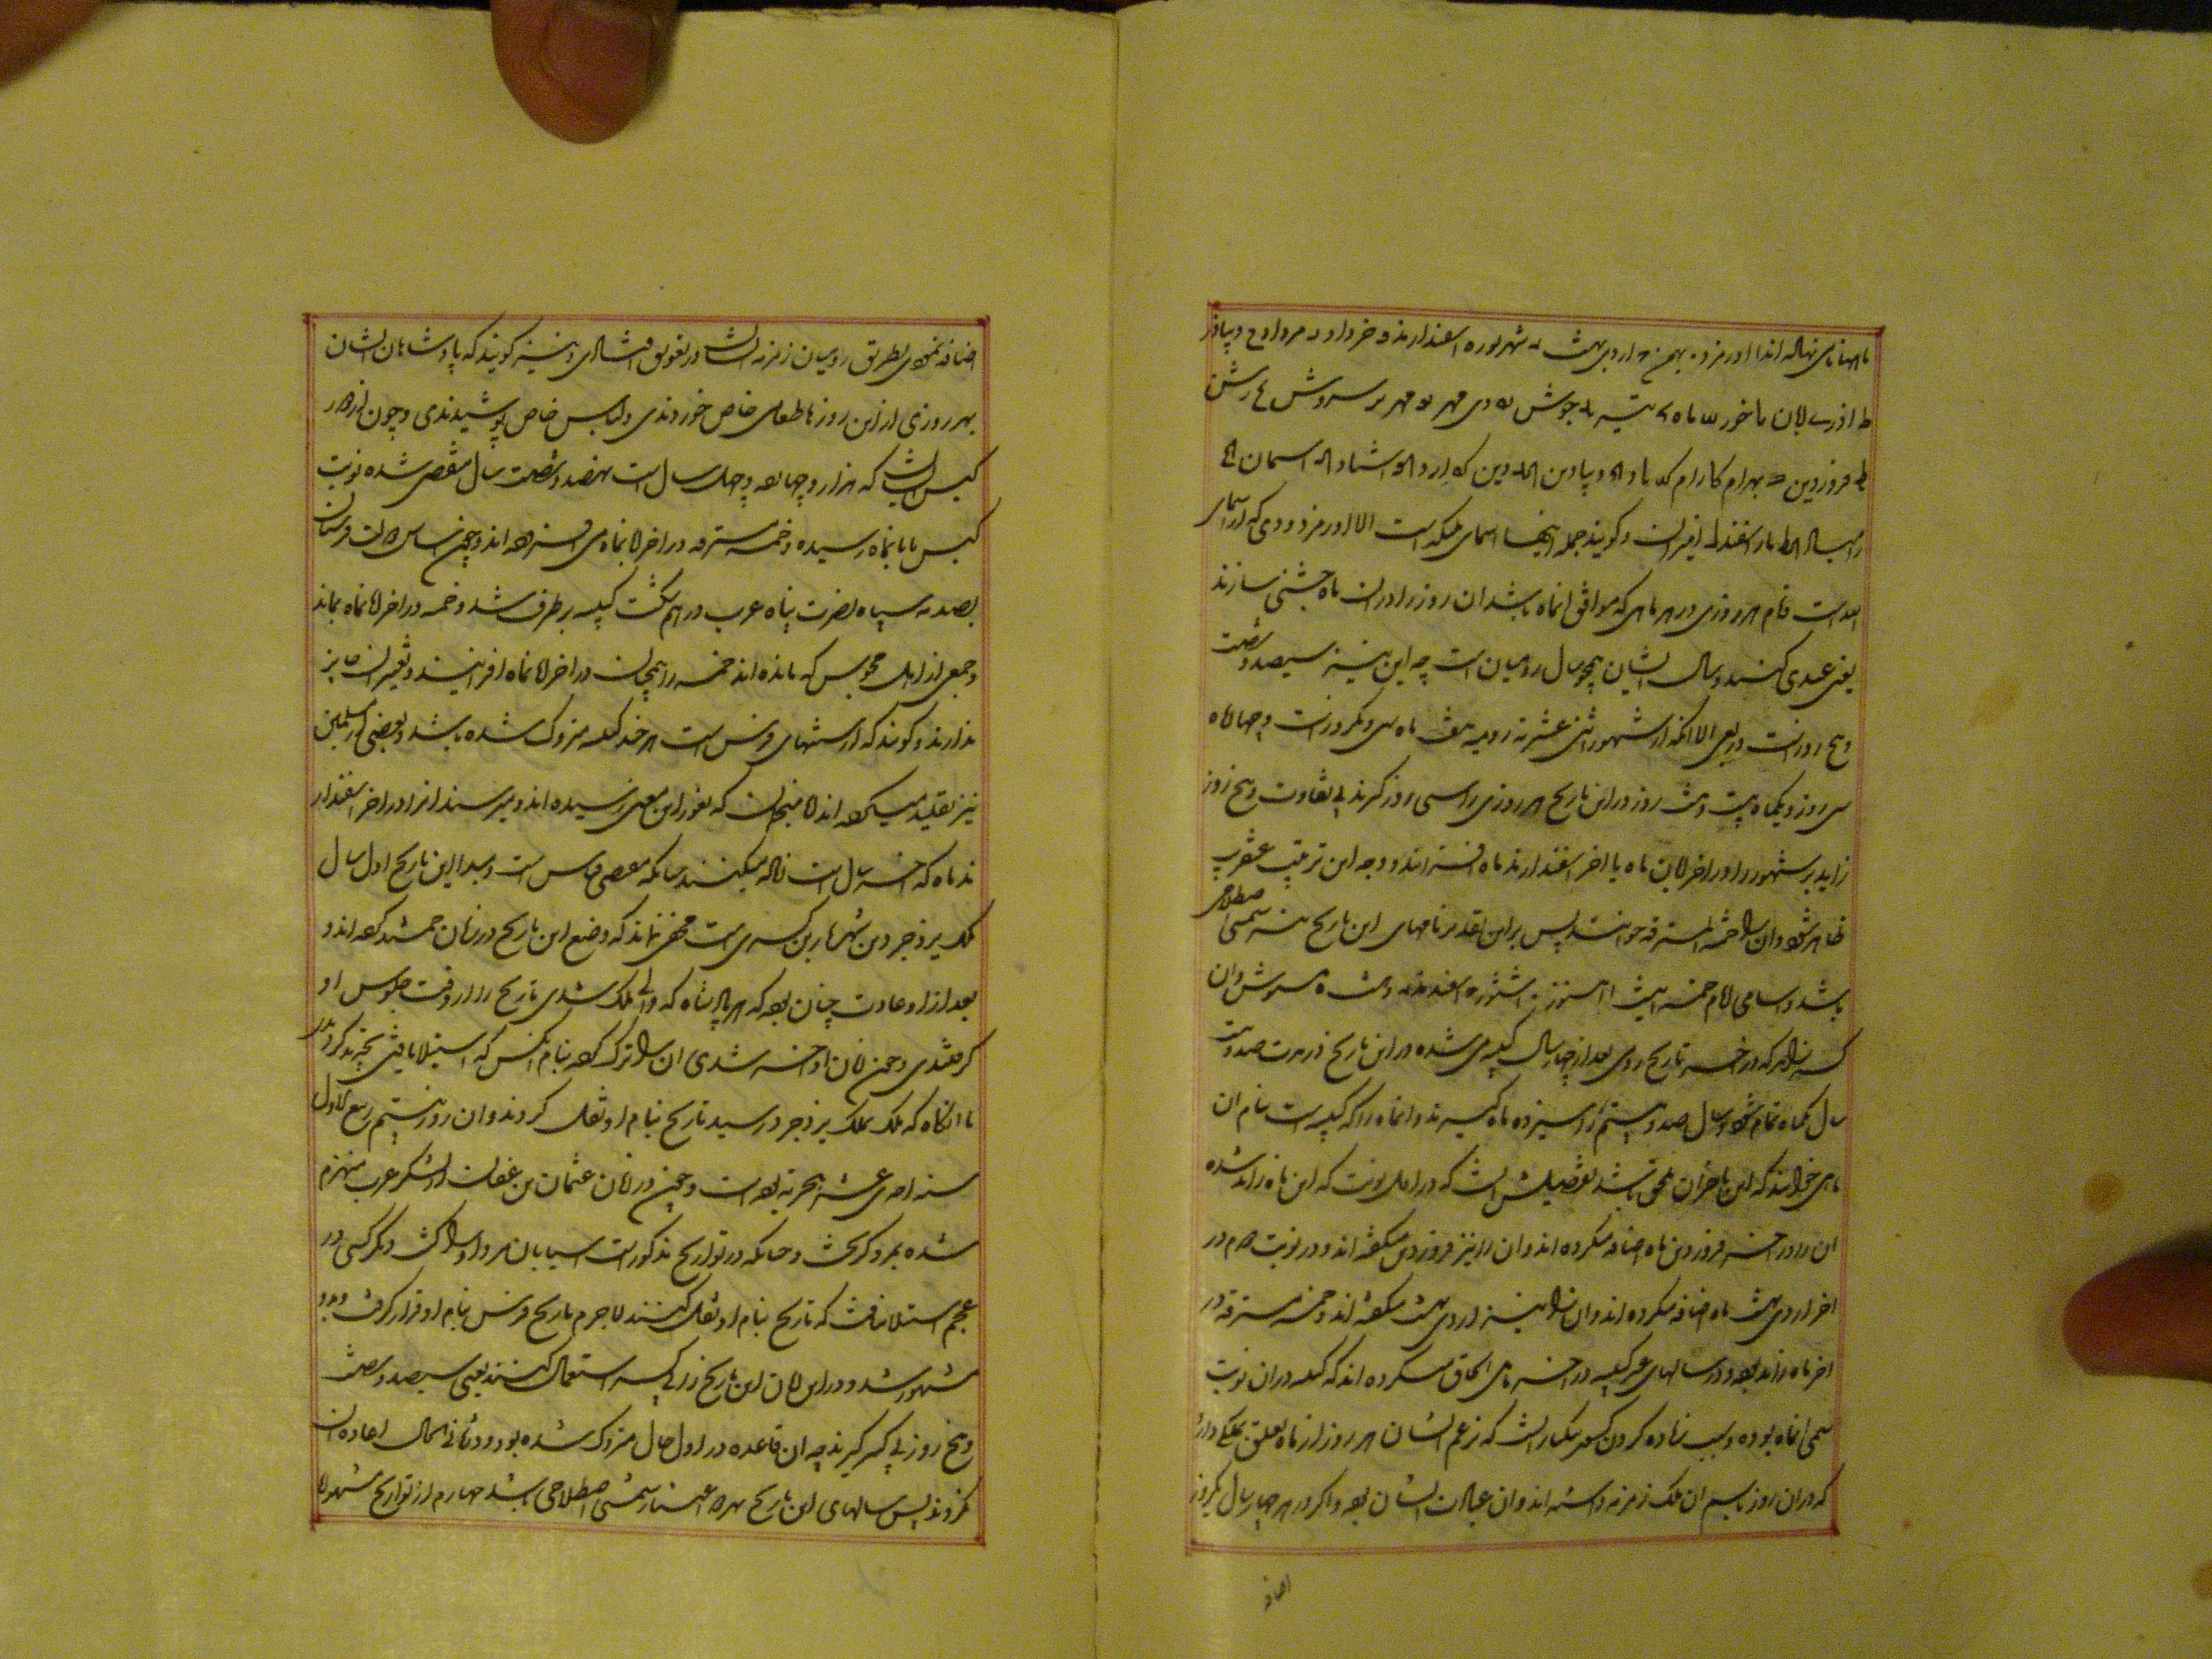 ماهها نامی نهاده اند ا اورمزد ب بهمن ج اردی بهشت د شهریور ه اسفندارمذ و خرداد ز مرداد ح دیبادر
ط اذر ی ابان یا خور یب ماه یج تیر ید جوش یه دی مهر یو مهر یز سروش یح رشن
یط فروردین ک بهرام کا رام کب باد کج دیبادین کد دین که ارد کو اشتاد کز اسمان کح
زامیاد کط مار اسفند ل انیران و کویند جمله اینها اسمای ملکه است الا اورمزد و دی که از اسمای
اله است و نام هر روزی در هر ماهی که موافق انماه باشد ان روز را در ان ماه جشنی سازند
یعنی عیدی کنند و سال ایشان همچو سال رومیان است چه این نیز سیصد و شصت
و پنج روز است و ربعی الا انکه از شهور اثنی عشر رومیه هفت ماه سی و یکروز است و چهار ماه
سی روز و یکماه بیست و هشت روز و در این تاریخ هر روزی را سی روز کیرند بی تفاوت و پنج روز
زاید بر شهور را در اخر ابان ماه یا اخر اسفندارمذ ماه افزوده اند و وجه این ترتیب عنقریب
ظاهر شود و ان را خمسه مسترقه خوانند پس بر این تقدیر نامهای این تاریخ سنه شمسی اصطلاحی
باشد و اسامی ایام خمسه
کسی که در تاریخ رومی بعد از چهار سال کبیسه می شده در این تاریخ در مدت صد و بیست
سال یکماه تمام شود و سال صد و بیستم را سیزده ماه کیرند و انماه را که کبیسه است بنام ان
ماهی خوانند که این باخر ان ملحق باشد تفصیلش انست که در اول نوبت که این ماه زاید شده
ان را در اخر فروردین ماه اضافه میکرده اند و ان را نیز فروردین میکفته اند و در نوبت دوم در
اخر اردی بهشت ماه اضافه میکرده اند و ان را نیز اردی بهشت میکفته اند و خمسه مسترقه در
اخر ماه زاید بوده و در سالهای غیر کبیسه در اخر ماهی الحاق میکرده اند که کبیسه در ان نوبت
سمی انماه بوده و سبب زیاده کردن کبیسه یکبار انست که بزعم ایشان هر روز از ماه تعلق بملکی دارد
که در ان روز باسم ان ملک زمزمه داشته اند و ان عبادت ایشان بوده و اکر در هر چهار سال یکروز
اضافه
اضافه نمودی بطریق رومیان زمزمه ایشان در تعویق افتادی و نیز کویند که پادشاهان ایشان
بهر روزی از این روزها طعامی خاص خوردندی و لباس خاص پوشیدندی و چون از دور
کبیس ایشان که هزار و چهارصد و چهل سال است نهصد و شصت سال منقضی شده نوبت
کبیس بابانماه رسیده و خمسه مسترقه در اخر ابانماه می افزوده اند و چون اساس دولت فرسان
بصدمه سپاه نصرت پناه عرب در هم شکست کبیسه بر طرف شد و خمسه در اخر ابانماه بماند
و جمعی از اهل مجوس که مانده اند خمسه را همچنان در اخر ابانماه افزایند و تغییر ان جایز
ندارند و کویند که از سنتهای فرس است هر چند کبیسه متروک شده باشد و بعضی از مسلمین
نیز تقلید میکرده اند اما منجمان که بغور این معنی رسیده اند و میرسند انرا در اخر اسفندار
مذ ماه که اخر سال است زیاده میکنند چنانکه مقتضی قیاس است و مبدا این تاریخ اول سال
ملک یزدجرد بن شهریار بن کسری است مخفی نماند که وضع این تاریخ در زمان جمشید کرده اند و
بعد از او عادت چنان بوده که هر پادشاه که والی ملک شدی تاریخ را از وقت جلوس او
کرفتندی و چون زمان او اخر شدی ان را ترک کرده بنام انکس که استیلا یافتی تجدید کردندی
تا انکاه که ملک بملک یزدجرد رسید تاریخ بنام او نقل کردند و ان روز بیستم ربیع الاول
سنه احدی عشر هجریه بوده است و چون در زمان عثمان بن عفان از لشکر عرب منهزم
شده بمرو کریخت و چنانکه در تواریخ مذکور است اسیابان مرو او را کشت و دیکر کسی در
عجم استیلا نیافت که تاریخ بنام او نقل کنند لاجرم تاریخ فرس بنام او قرار کرفت و بدو
مشهور شد و در این زمان این تاریخ را بی کبیسه استعمال کنند یعنی سیصد و شصت
و پنج روز بی کسر کیرند چه ان قاعده در اول حال متروک شده بود و در ثانی الحال اعاده ان
نکردند پس سالهای این تاریخ بهر دو اعتبار شمسی اصطلاحی باشد چهارم از تواریخ مشهوره